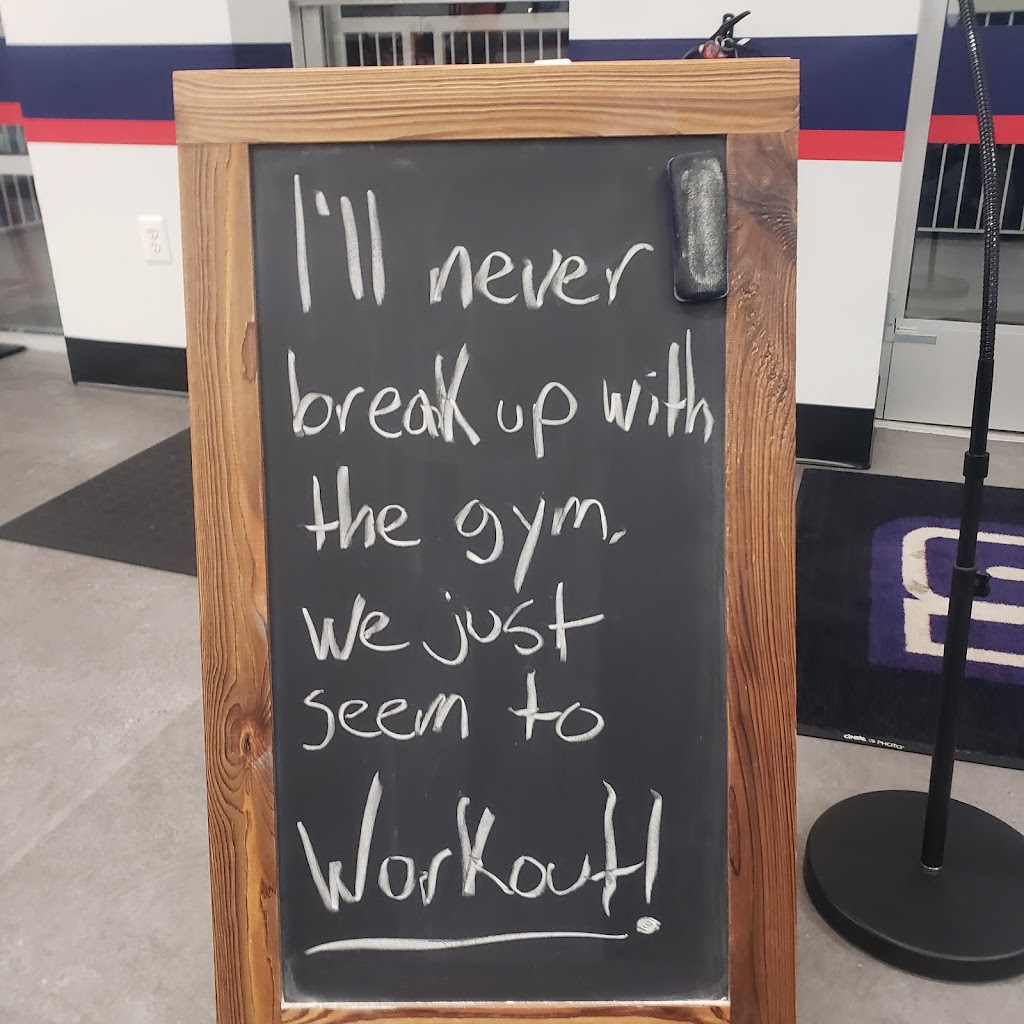 I'll never
break up with
the gym.
We just
seem to
Workout!